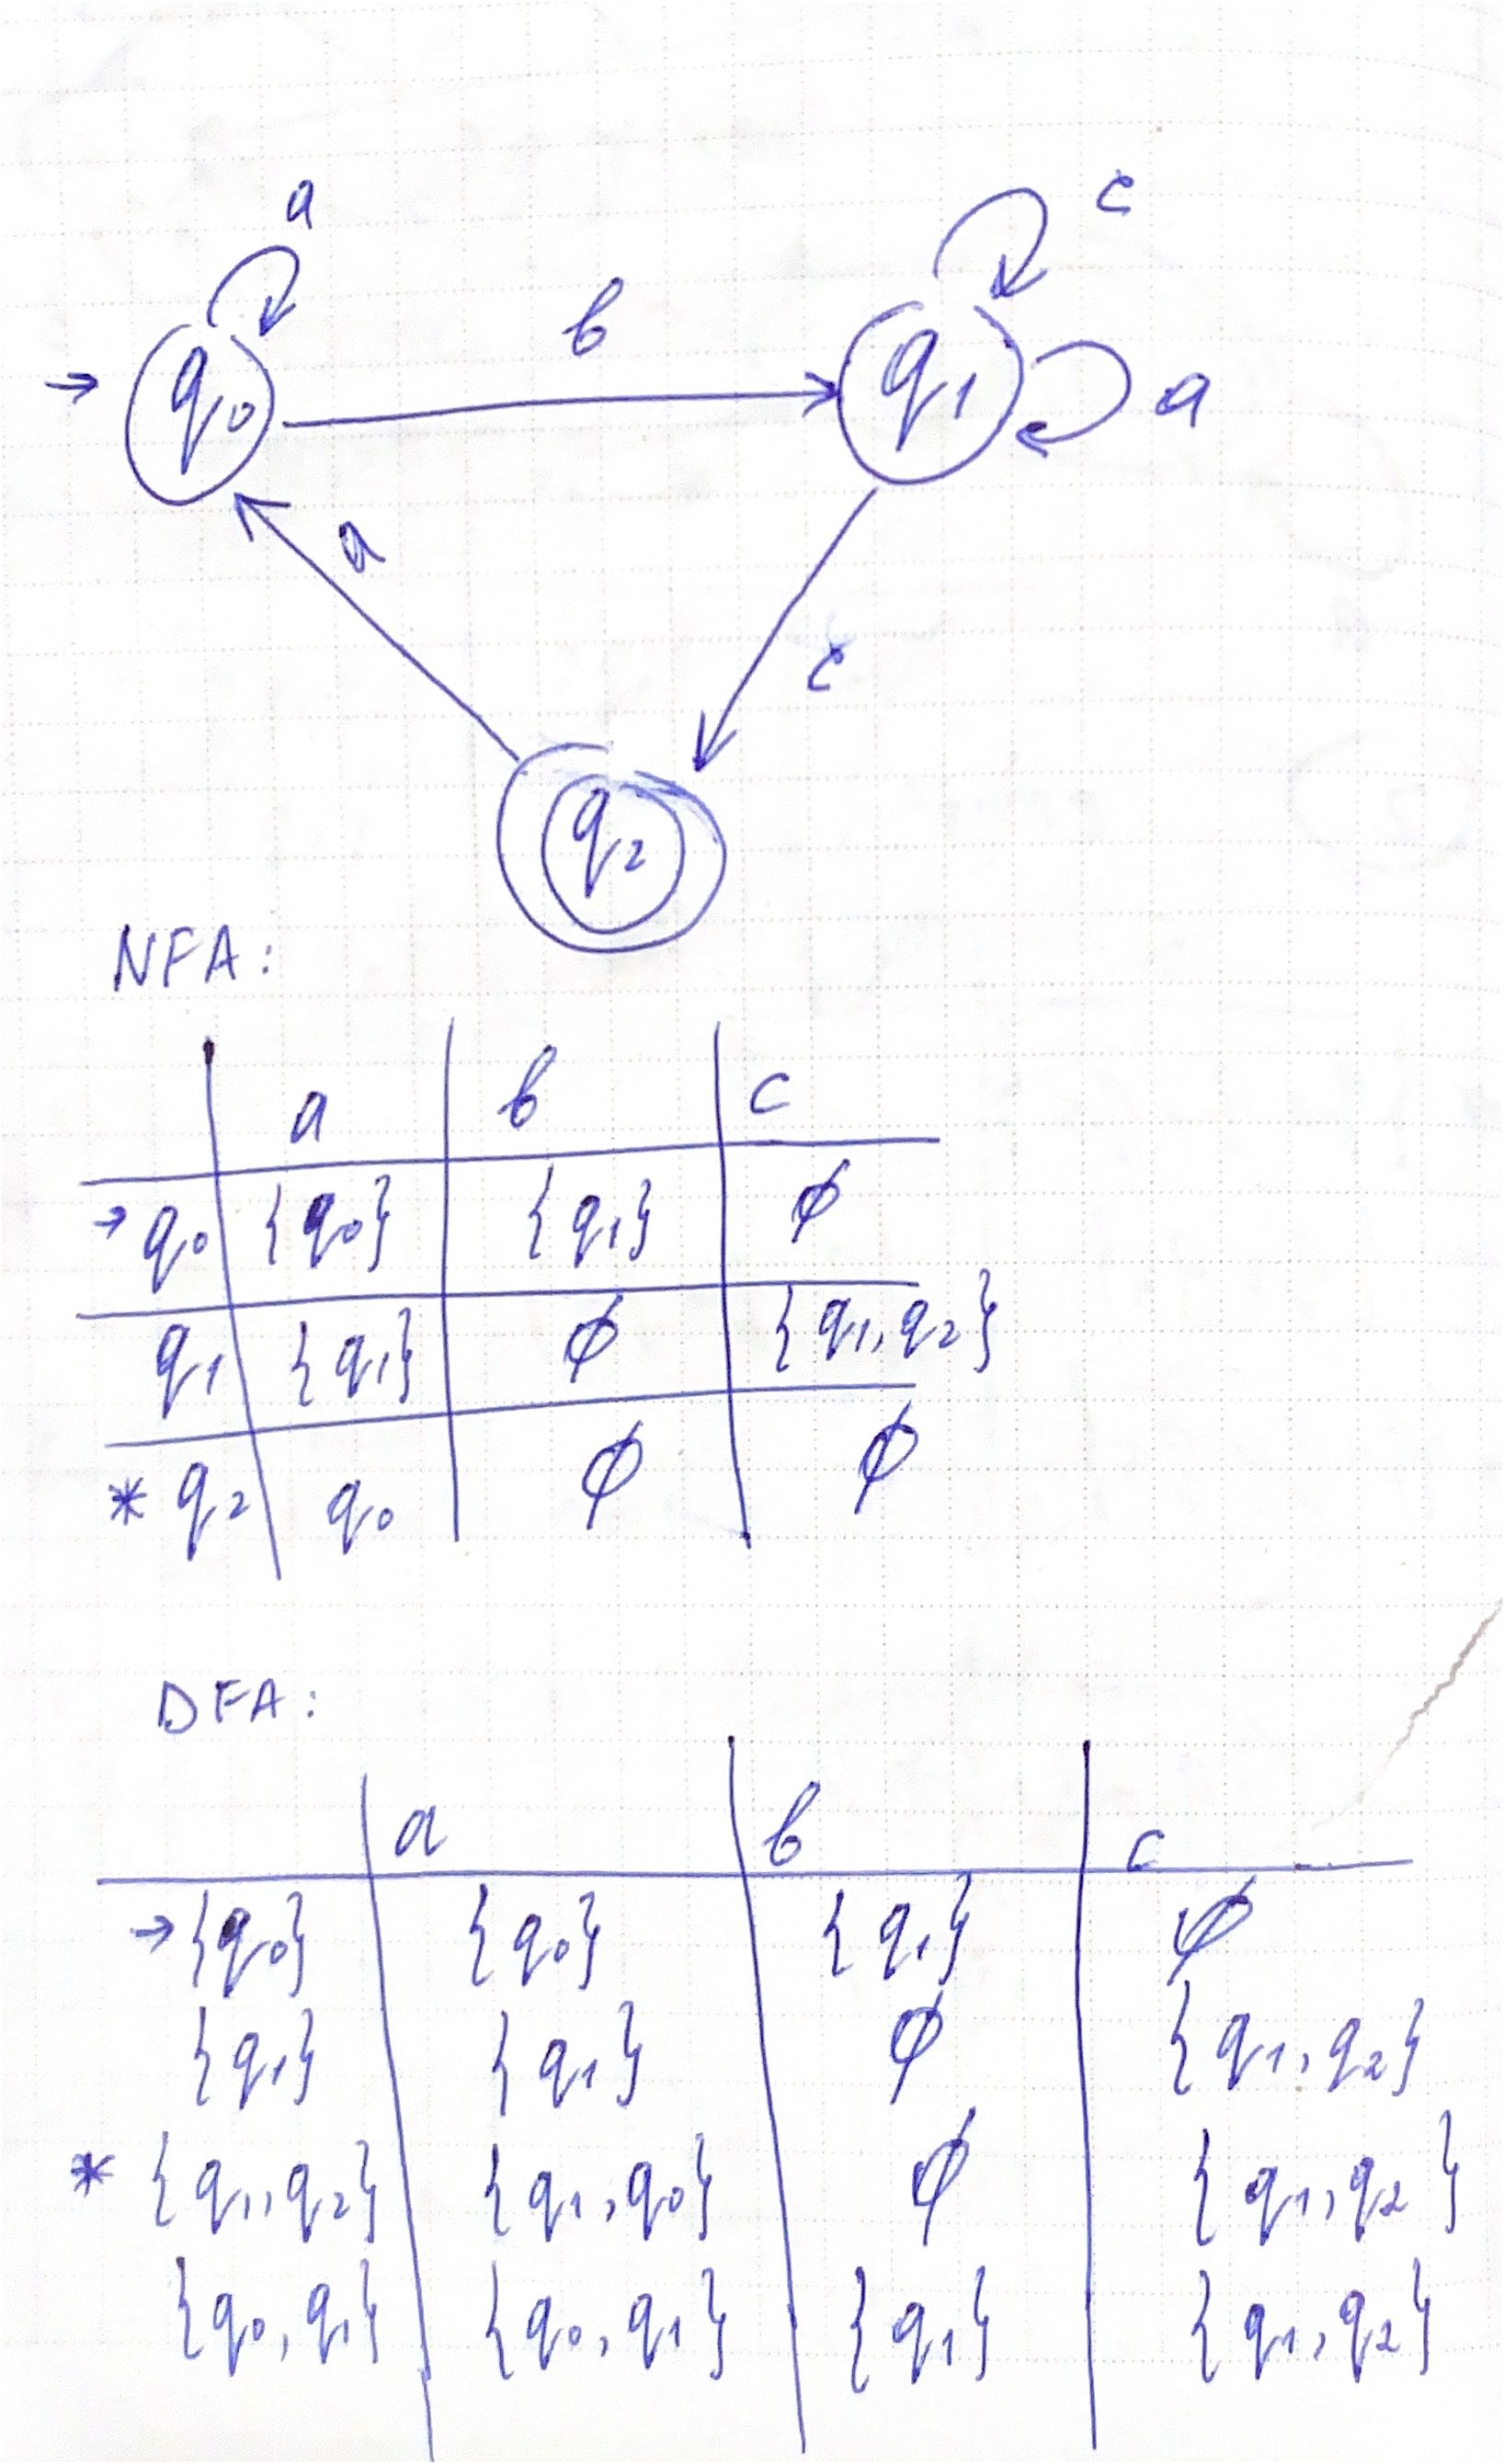 a
c
b
→ q₀
q₁
a
a
c
q₂
NFA:
a b c
→ q₀ {q₀} {q₁} ϕ
q₁ {q₁} ϕ {q₁, q₂}
* q₂ q₀ ϕ ϕ
DFA:
a b c
→ {q₀} {q₀} {q₁} ϕ
{q₁} {q₁} ϕ {q₁, q₂}
* {q₁, q₂} {q₁, q₀} ϕ {q₁, q₂}
{q₀, q₁} {q₀, q₁} {q₁} {q₁, q₂}